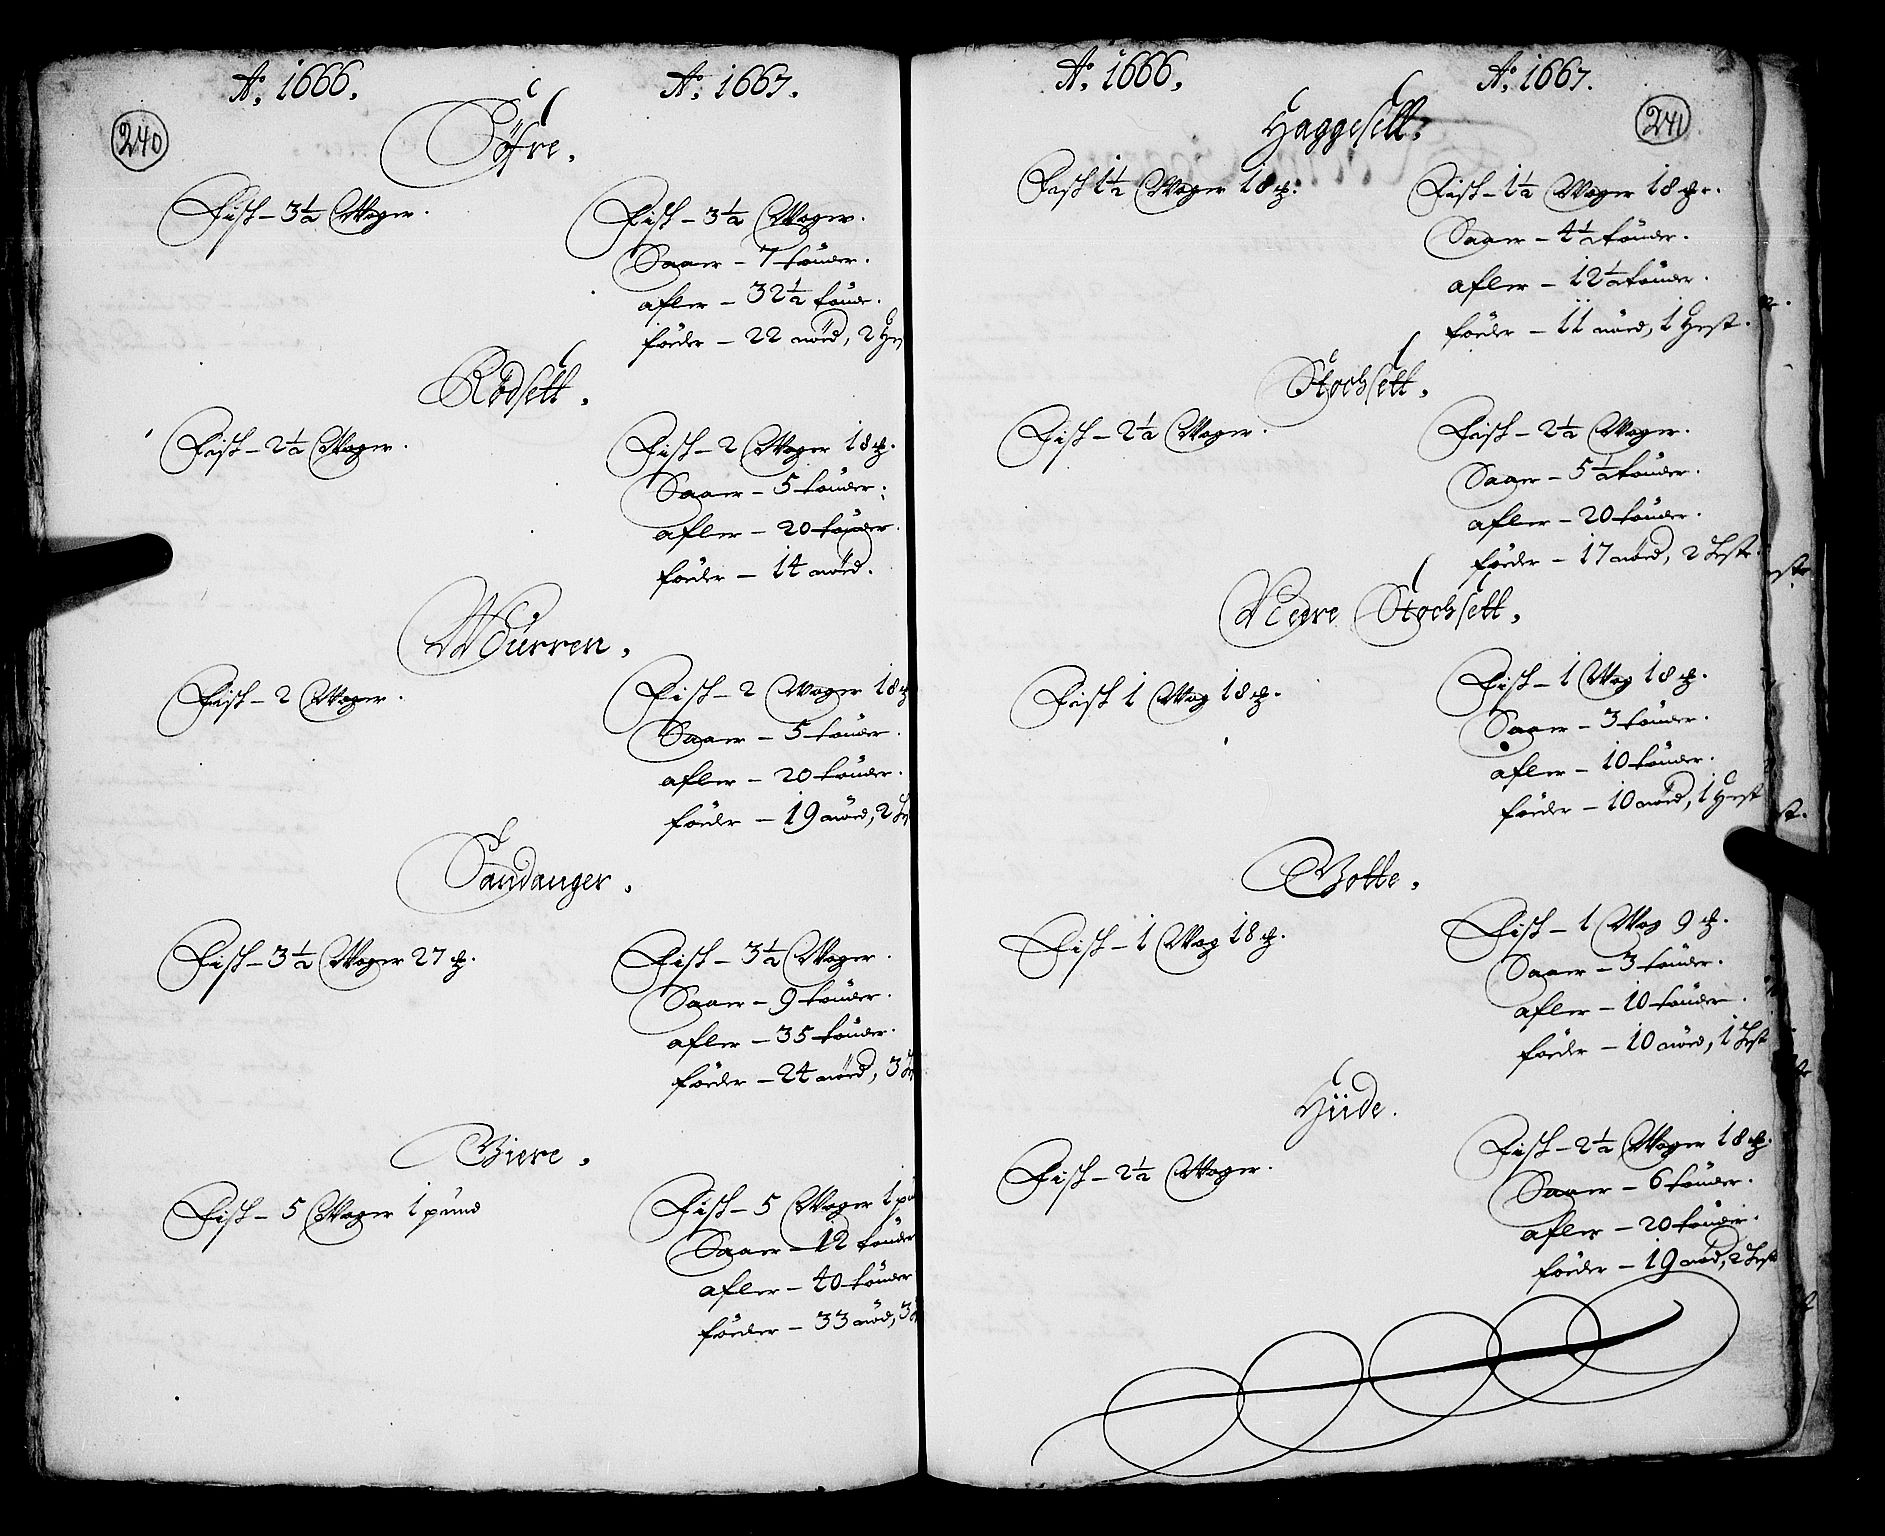 240
Aº. 1666. Aº. 1667.
Söfre.
Fisk – 3½ Woger. Fisk – 3½ Woger.
Saaer – 7 tønder.
afler – 32½ tønde.
føeder – 22 nöed, 2 Hes
Rödsett.
Fisk – 2½ Woger. Fisk – 2 Woger 18 ℔.
Saaer – 5 tønder.
afler – 20 tønder.
føeder – 14 nöed.
Mürren.
Fisk – 2 Woger. Fisk – 2 Woger 18 ℔
Saaer – 5 tønder.
afler – 20 tønder.
føeder – 19 nöed, 2
Sandanger.
Fisk – 3½ Woger 27 ℔. Fisk – 3½ Woger.
Saaer – 9 tønder.
afler – 35 tønder.
føeder – 24 nöed, 3
Biere.
Fisk – 5 Woger 1 pund Fisk – 5 Woger 1 pu
Saaer – 12 tønder
afler – 40 tønder
føeder – 33 nöd, 3
241
Aº. 1666. Aº. 1667.
Haggesett.
Fisk 1½ Woger 18 ℔. Fisk – 1½ Woger 18 ℔.
Saaer – 4½ tønder.
afler – 12½ tønder.
føeder – 11 nöed, 1 Hest.
Stochsett.
Fisk – 2½ Woger. Fisk – 2½ Woger.
Saaer – 5½ tønder.
afler – 20 tønder.
føeder – 17 nöed, 2 Heste.
Nedre Stochsett.
Fisk 1 Wog 18 ℔. Fisk – 1 Wog 18 ℔.
Saaer – 3 tønder.
afler – 10 tønder.
føeder – 10 nöed, 1 Hest
Botte.
Fisk – 1 Wog 18 ℔. Fisk – 1 Wog 9 ℔.
Saaer – 3 tønder.
afler – 10 tønder.
føeder – 10 nöed, 1 Hest
Hüde.
Fisk – 2½ Woger. Fisk – 2½ Woger 18 ℔.
Saaer – 6 tønder.
afler – 20 tønder.
føeder – 19 nöd, 2 Heste